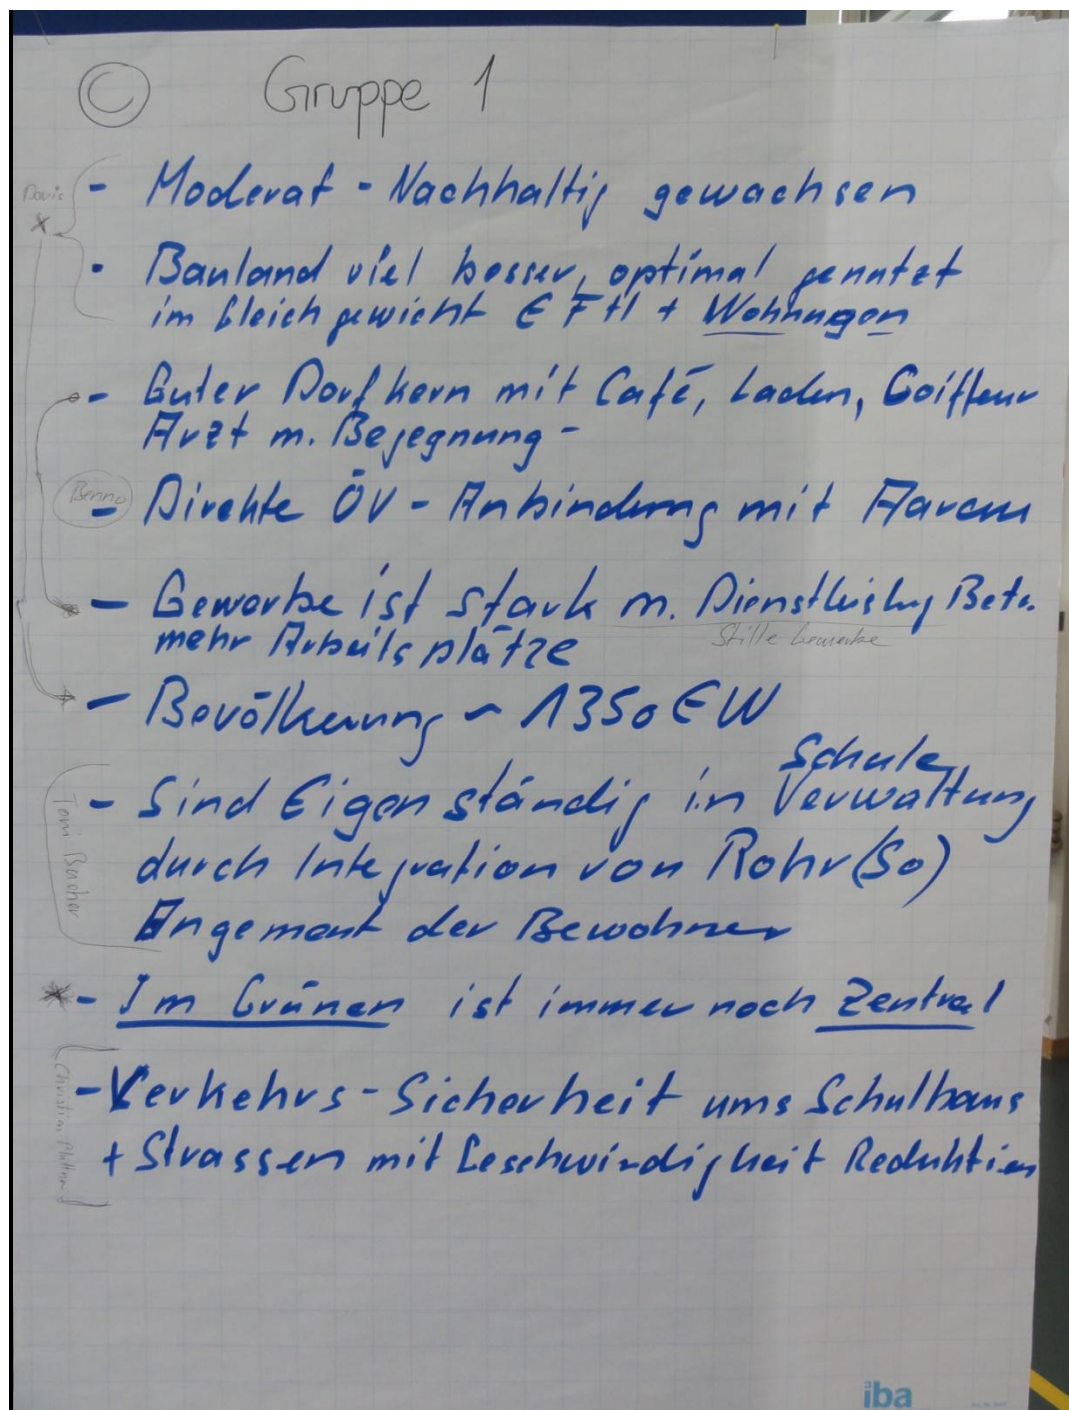 © Gruppe 1
Doris
- Moderat - Nachhaltig gewachsen
- Bauland viel besser, optimal genutzt
im Gleichgewicht EFH + Wohnungen
- Guter Dorfkern mit Café, Laden, Coiffeur
Arzt m. Begegnung -
Benno
- Direkte ÖV - Anbindung mit Aarau
- Gewerbe ist stark m. Dienstleistung Betr.
Stille Gewerbe
mehr Arbeitsplätze
- Bevölkerung ~ 1350 EW
Schule
- Sind Eigenständig in Verwaltung
durch Integration von Rohr (So)
Engement der Bewohner
Toni Bucher
* - Im Grünen ist immer noch Zentral
- Verkehrs - Sicherheit ums Schulhaus
+ Strassen mit Geschwindigkeit Reduktion
Christian
iba